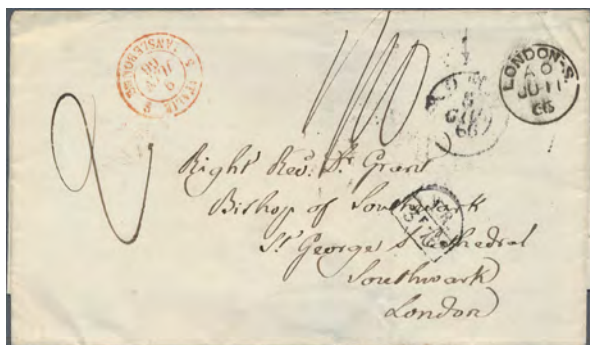 LONDON-S.
JU 11
66
ROMA
8
GIU
66
ITALIE
9
JUIN
66
2
Right Revd. Dr. Grant
Bishop of Southwark
St George's Cathedral
Southwark
London